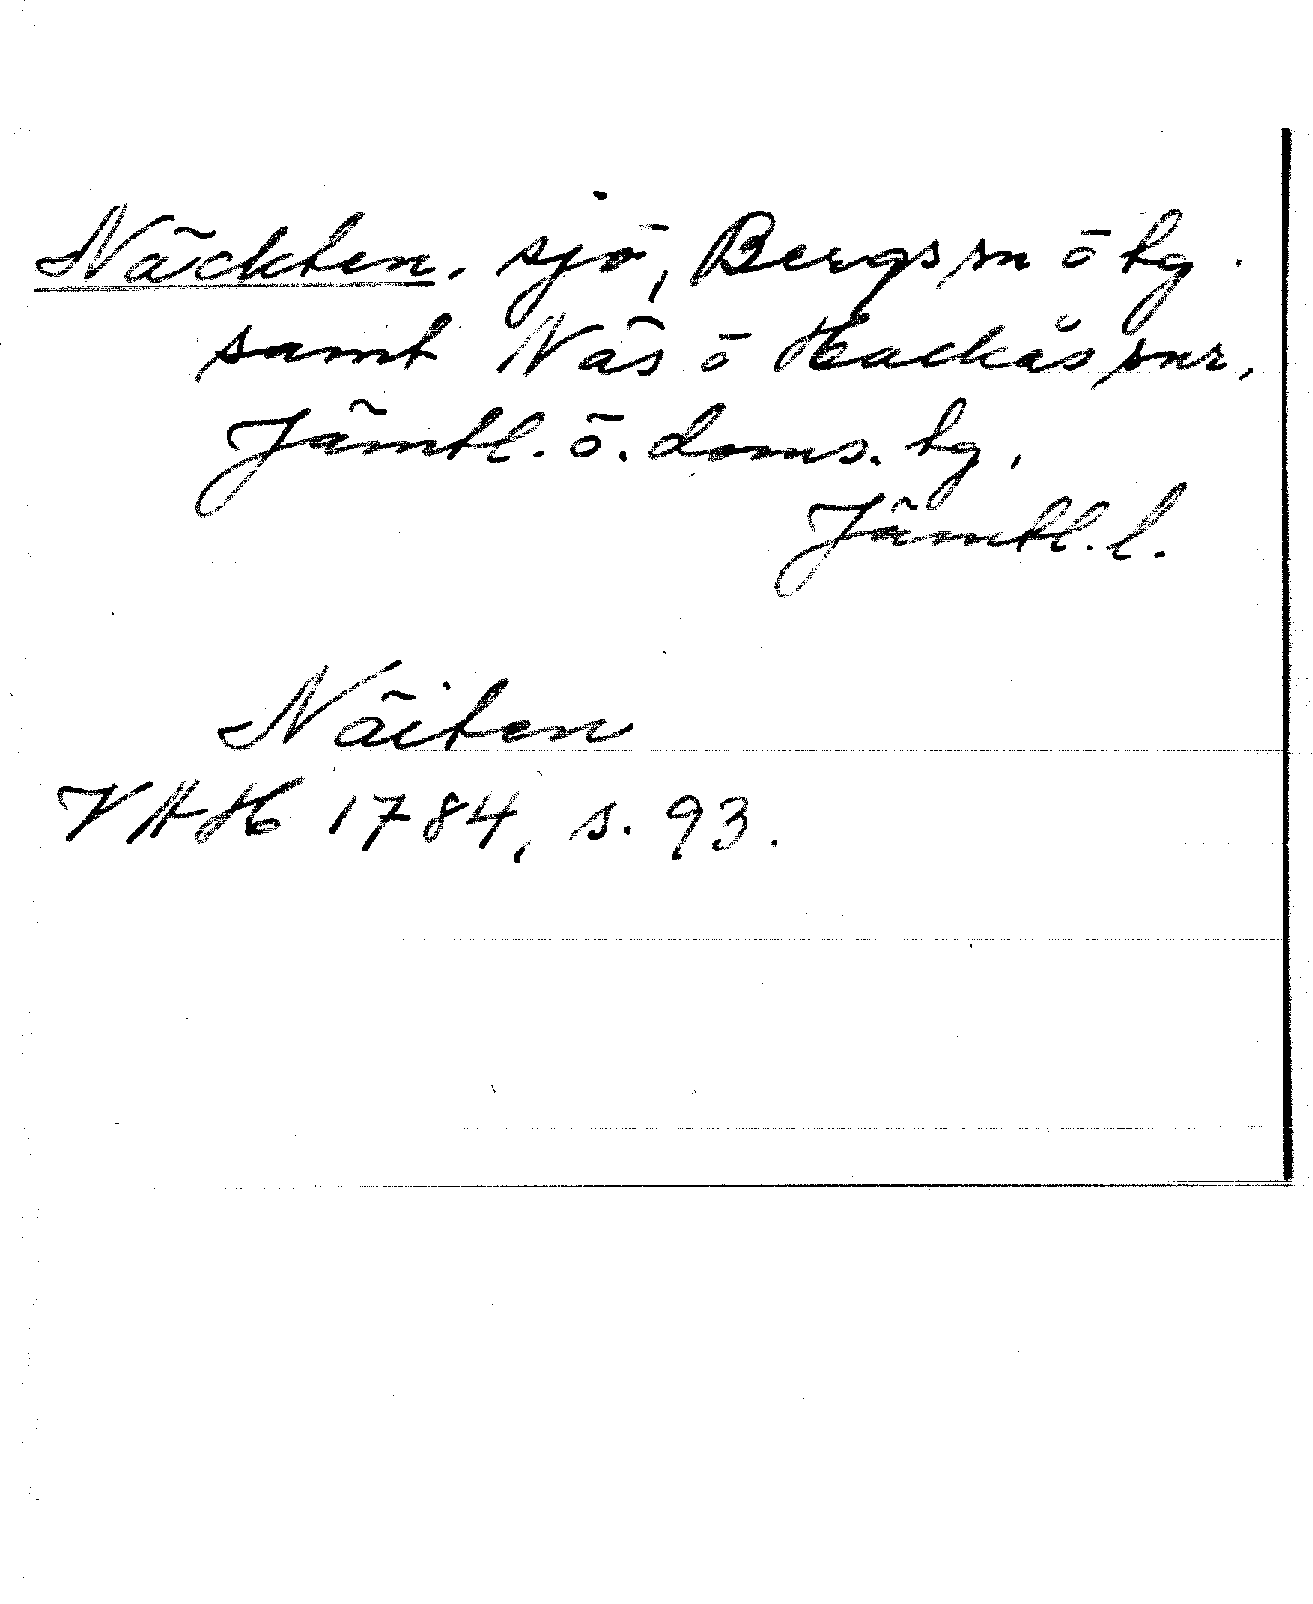 Näckten. sjö, Bergs sn ö tg.
samt Näs ö Hackås snr,
Jämtl. ö. doms. tg,
Jämtl. l.
Näiten
VAH 1784, s. 93.